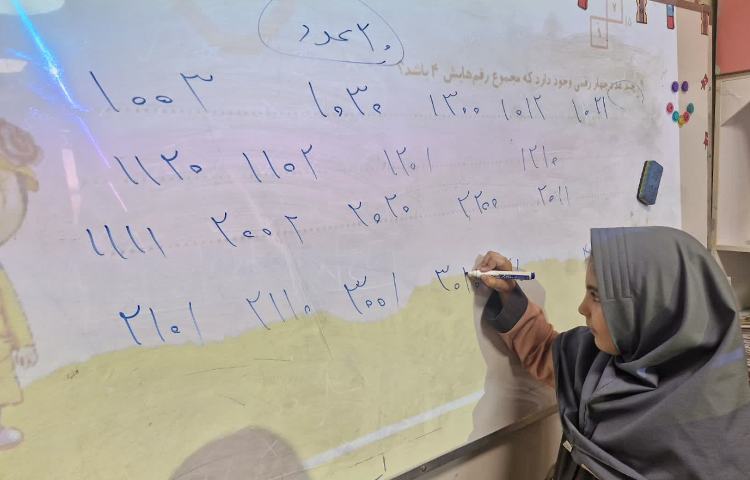 ۲۰ عدد
چند عدد چهار رقمی وجود دارد که مجموع رقم‌هایش ۴ باشد؟
۱۰۰۳ ۱۰۳۰ ۱۳۰۰ ۱۰۱۲ ۱۰۲۱
۱۱۲۰ ۱۱۰۲ ۱۲۰۱ ۱۲۱۰
۱۱۱۱ ۲۰۰۲ ۲۰۲۰ ۲۲۰۰ ۲۰۱۱
۲۱۰۱ ۲۱۱۰ ۳۰۰۱ ۳۰۱۰